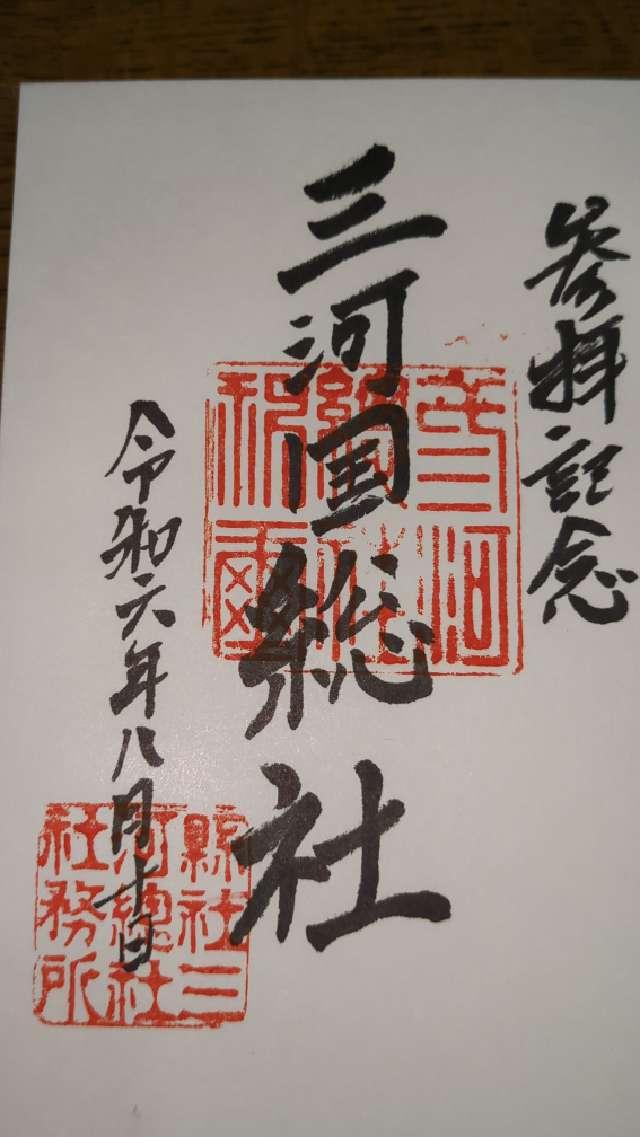 参拝記念
三河国総社
令和六年八月十日
縣社三
河總社
社務所